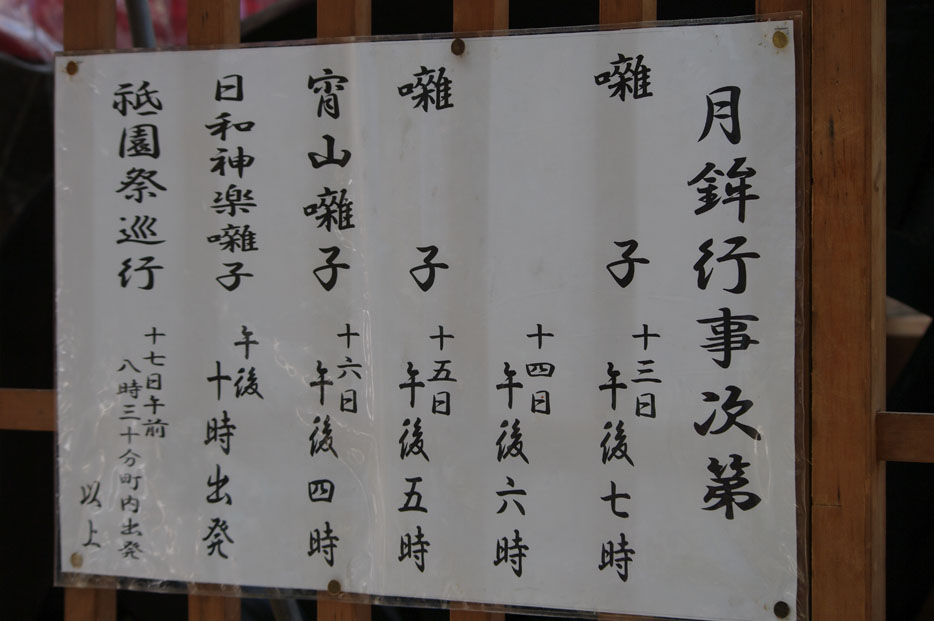 月鉾行事次第
囃子 十三日 午後七時
十四日 午後六時
囃子 十五日 午後五時
宵山囃子 十六日 午後四時
日和神楽囃子 午後十時出発
祇園祭巡行 十七日午前八時三十分町内出発
以上